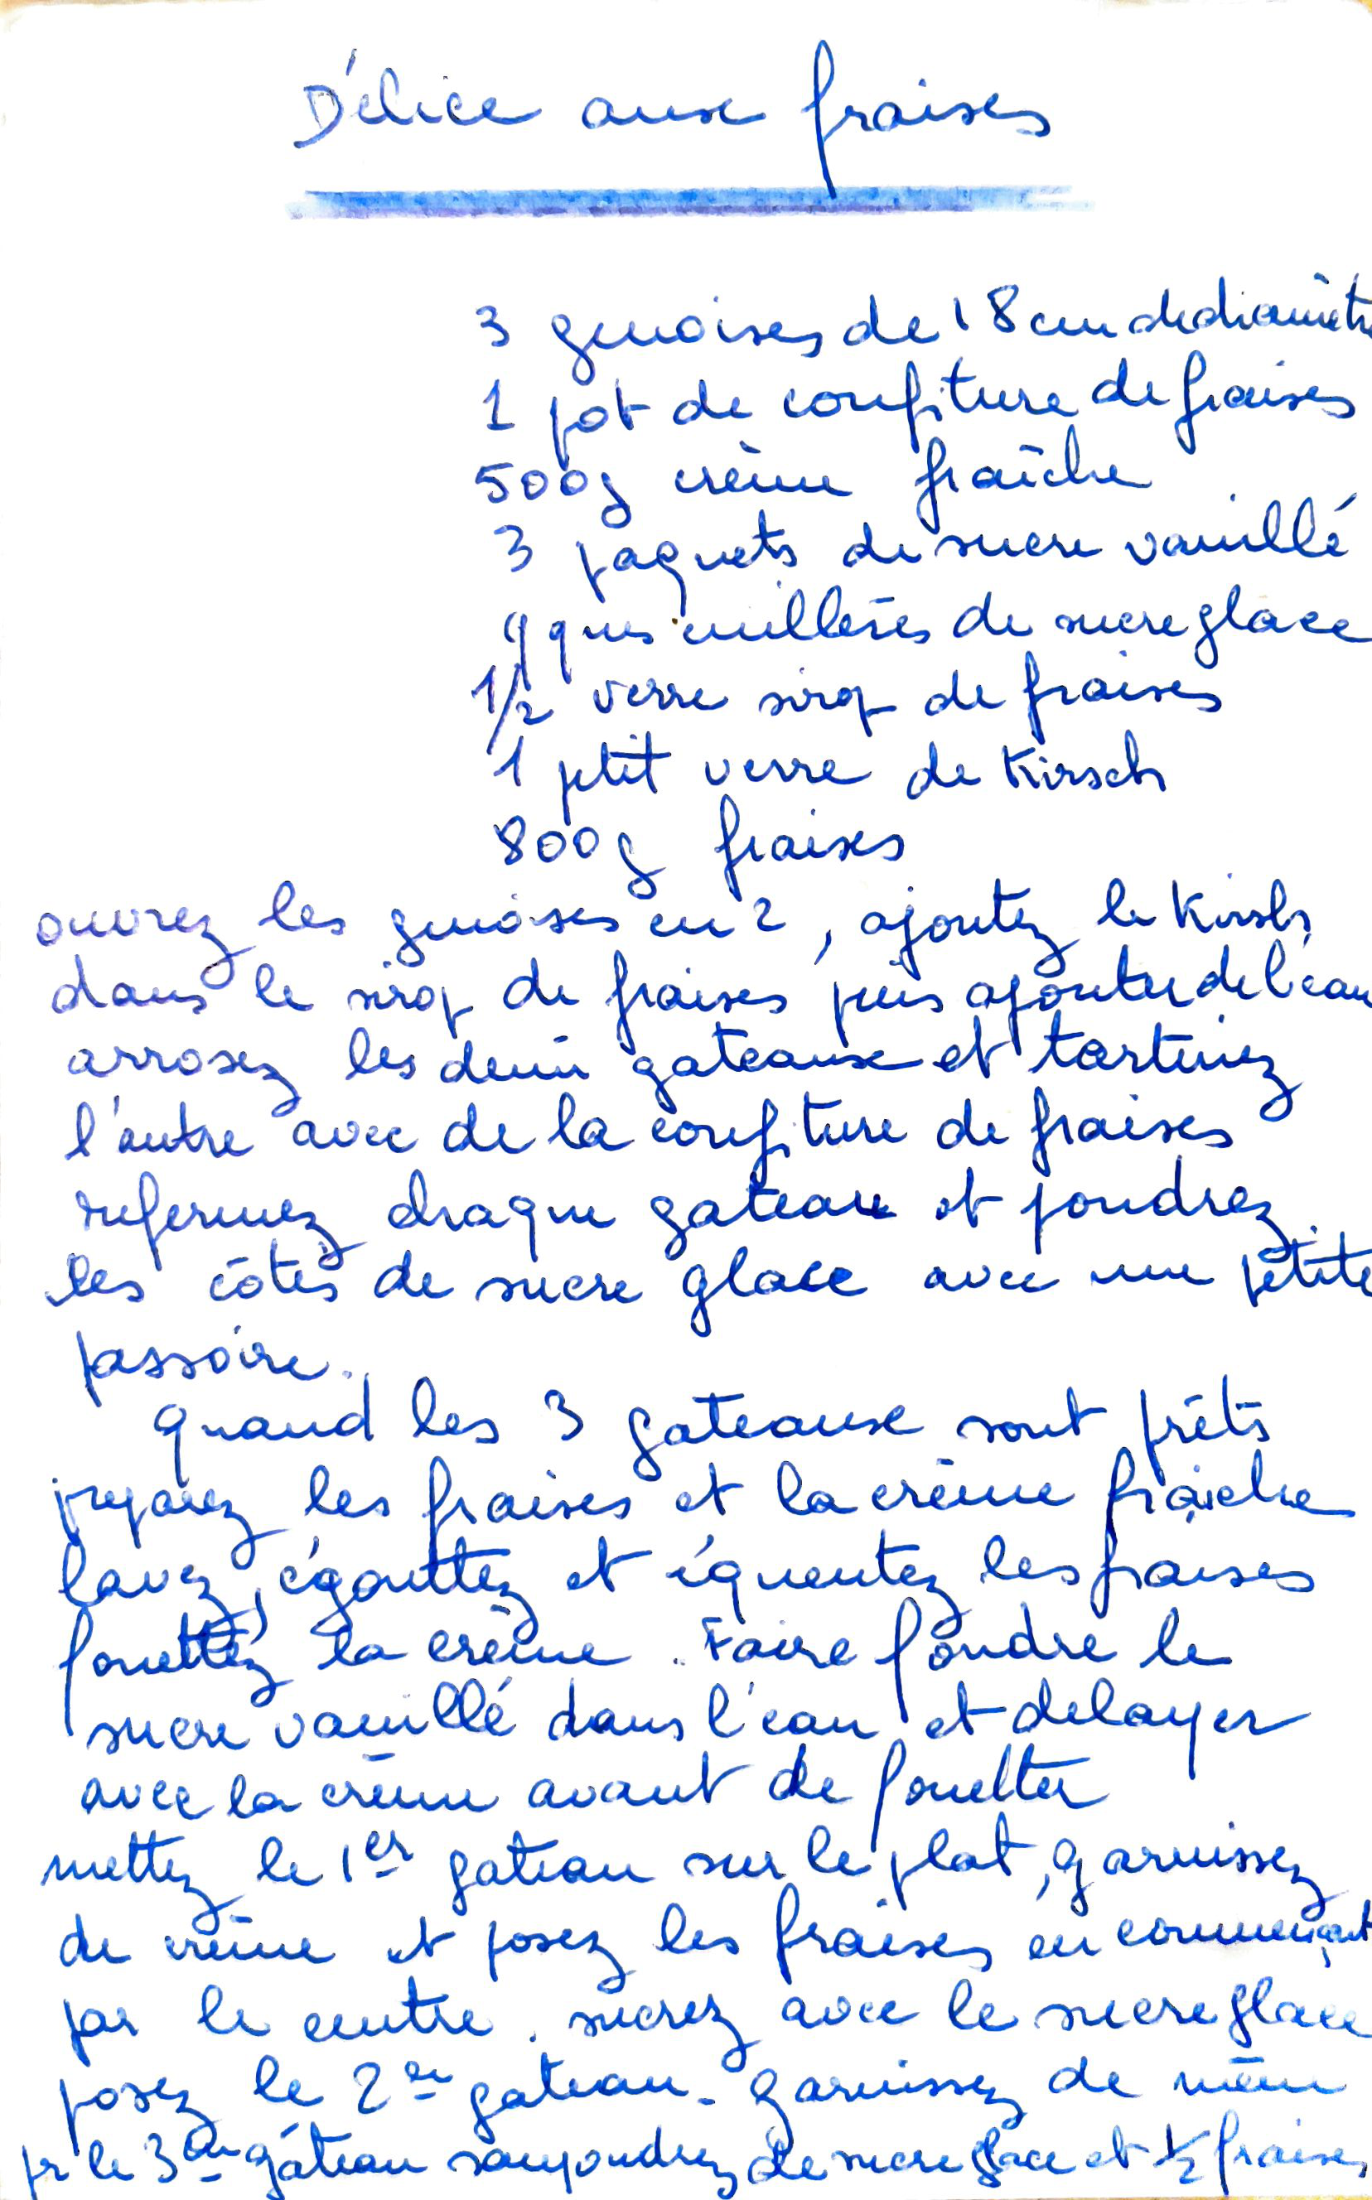 Délice aux fraises
3 genoises de 18 cm de diamètre
1 pot de confiture de fraises
500g crème fraîche
3 paquets de sucre vanillé
qques cuillerées de sucre glace
1/2 verre sirop de fraises
1 petit verre de Kirsch
800g fraises
ouvrez les genoises en 2, ajoutez le Kirsch
dans le sirop de fraises puis ajouter de l'eau
arrosez les demi gateaux et tartinez
l'autre avec de la confiture de fraises
refermez chaque gateau et poudrez
les côtés de sucre glace avec une petite
passoire.
quand les 3 gateaux sont prêts
preparez les fraises et la crème fraîche
lavez, égouttez et équeutez les fraises
fouettez la crème. Faire fondre le
sucre vanillé dans l'eau et delayer
avec la crème avant de fouetter
mettez le 1er gateau sur le plat, garnissez
de crème et posez les fraises en commençant
par le centre. sucrez avec le sucre glace
posez le 2me gateau. garnissez de même
pr le 3me gâteau saupoudrez de sucre glace et 1/2 fraises